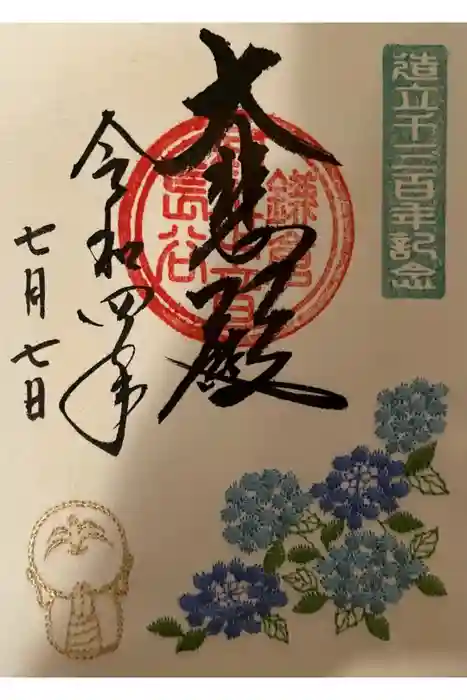 造立千三百年記念
鎌倉
大悲殿
長谷
令和四年
七月七日